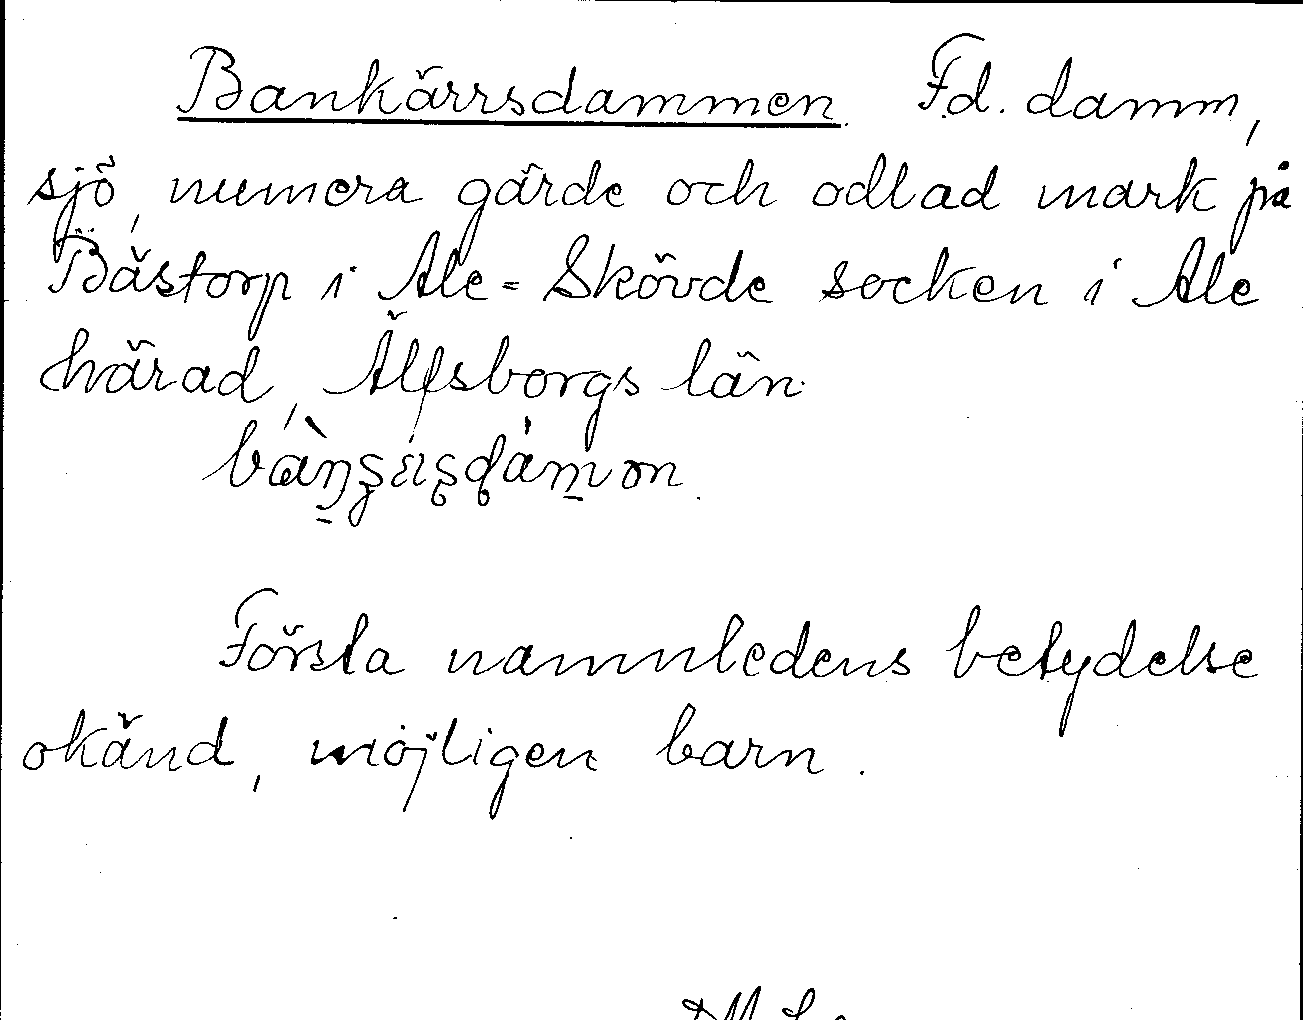 Bankärrsdammen. Fd. damm,
sjö, numera gärde och odlad mark på
Båstorp i Ale-Skövde socken i Ale
härad, Älfsborgs län.
Första namnledens betydelse
okänd, möjligen barn.